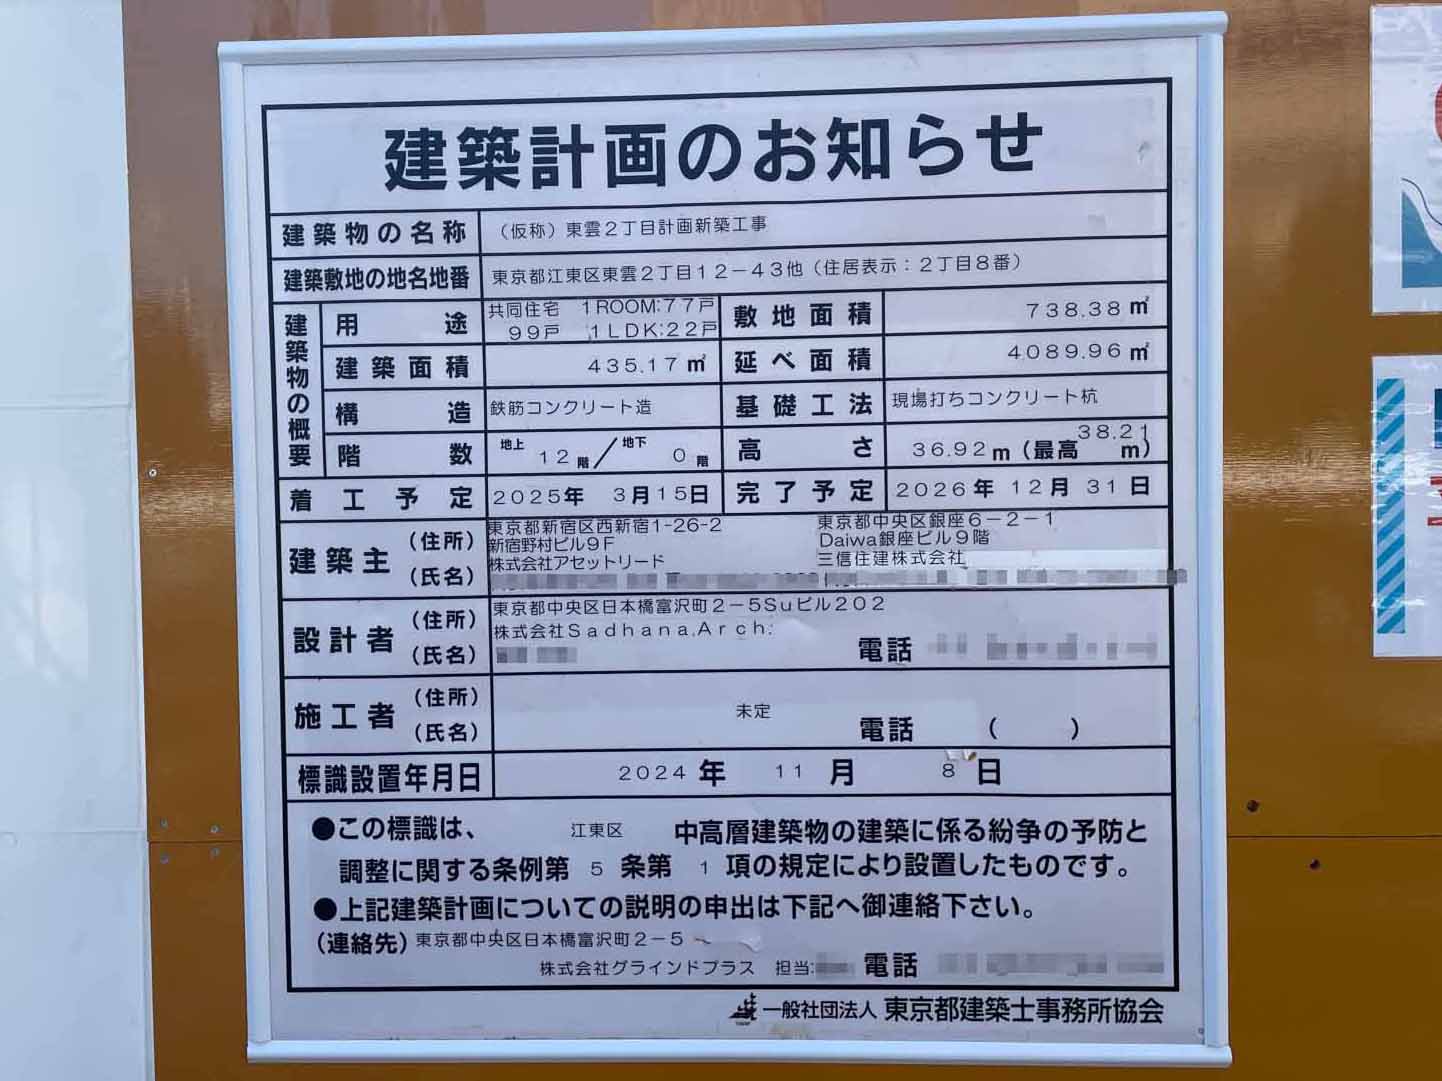 建築計画のお知らせ
建築物の名称 （仮称）東雲２丁目計画新築工事
建築敷地の地名地番 東京都江東区東雲２丁目１２－４３他（住居表示：２丁目８番）
建築物の概要
用途 共同住宅 １ROOM:７７戸
９９戸 １LDK:２２戸
敷地面積 738.38㎡
建築面積 435.17㎡
延べ面積 4089.96㎡
構造 鉄筋コンクリート造
基礎工法 現場打ちコンクリート杭
階数 地上 12階／地下 0階
高さ 36.92m（最高 38.21m）
着工予定 2025年 3月15日
完了予定 2026年12月31日
建築主（住所）（氏名）
東京都新宿区西新宿1-26-2
新宿野村ビル９F
株式会社アセットリード
東京都中央区銀座６－２－１
Daiwa銀座ビル９階
三信住建株式会社
設計者（住所）（氏名）
東京都中央区日本橋富沢町２－５Suビル２０２
株式会社Sadhana.Arch.
電話
施工者（住所）（氏名）
未定
電話 （ ）
標識設置年月日 2024年 11月 8日
●この標識は、 江東区 中高層建築物の建築に係る紛争の予防と
調整に関する条例第 5 条第 1 項の規定により設置したものです。
●上記建築計画についての説明の申出は下記へ御連絡下さい。
（連絡先）東京都中央区日本橋富沢町２－５
株式会社グラインドプラス 担当: 電話
一般社団法人 東京都建築士事務所協会